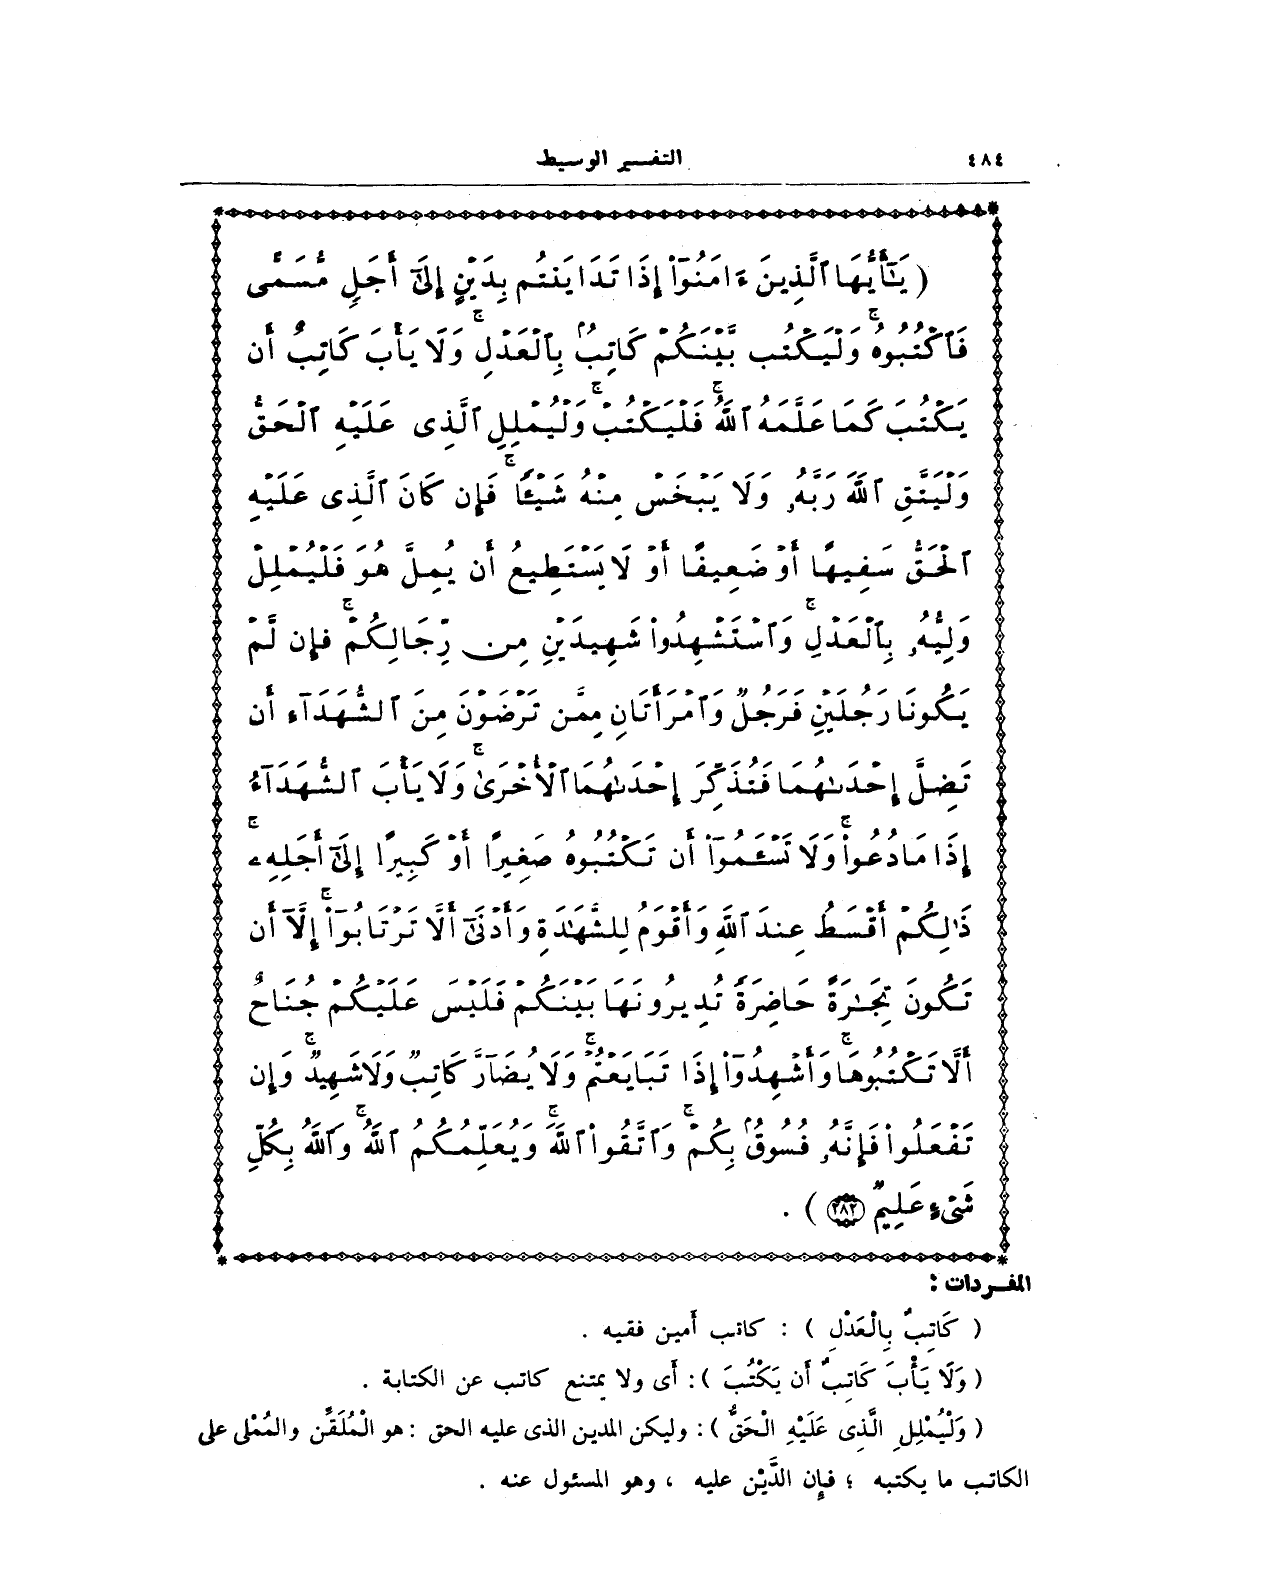 ٤٨٤ التفسير الوسيط
( يَٰٓأَيُّهَا ٱلَّذِينَ ءَامَنُوٓا۟ إِذَا تَدَايَنتُم بِدَيْنٍ إِلَىٰٓ أَجَلٍ مُّسَمًّى
فَٱكْتُبُوهُ ۚ وَلْيَكْتُب بَّيْنَكُمْ كَاتِبٌۢ بِٱلْعَدْلِ ۚ وَلَا يَأْبَ كَاتِبٌ أَن
يَكْتُبَ كَمَا عَلَّمَهُ ٱللَّهُ ۚ فَلْيَكْتُبْ ۚ وَلْيُمْلِلِ ٱلَّذِى عَلَيْهِ ٱلْحَقُّ
وَلْيَتَّقِ ٱللَّهَ رَبَّهُۥ وَلَا يَبْخَسْ مِنْهُ شَيْـًٔا ۚ فَإِن كَانَ ٱلَّذِى عَلَيْهِ
ٱلْحَقُّ سَفِيهًا أَوْ ضَعِيفًا أَوْ لَا يَسْتَطِيعُ أَن يُمِلَّ هُوَ فَلْيُمْلِلْ
وَلِيُّهُۥ بِٱلْعَدْلِ ۚ وَٱسْتَشْهِدُوا۟ شَهِيدَيْنِ مِن رِّجَالِكُمْ ۚ فَإِن لَّمْ
يَكُونَا رَجُلَيْنِ فَرَجُلٌ وَٱمْرَأَتَانِ مِمَّن تَرْضَوْنَ مِنَ ٱلشُّهَدَآءِ أَن
تَضِلَّ إِحْدَىٰهُمَا فَتُذَكِّرَ إِحْدَىٰهُمَا ٱلْأُخْرَىٰ ۚ وَلَا يَأْبَ ٱلشُّهَدَآءُ
إِذَا مَا دُعُوا۟ ۚ وَلَا تَسْـَٔمُوٓا۟ أَن تَكْتُبُوهُ صَغِيرًا أَوْ كَبِيرًا إِلَىٰٓ أَجَلِهِۦ ۚ
ذَٰلِكُمْ أَقْسَطُ عِندَ ٱللَّهِ وَأَقْوَمُ لِلشَّهَٰدَةِ وَأَدْنَىٰٓ أَلَّا تَرْتَابُوٓا۟ ۚ إِلَّآ أَن
تَكُونَ تِجَٰرَةً حَاضِرَةً تُدِيرُونَهَا بَيْنَكُمْ فَلَيْسَ عَلَيْكُمْ جُنَاحٌ
أَلَّا تَكْتُبُوهَا ۚ وَأَشْهِدُوٓا۟ إِذَا تَبَايَعْتُمْ ۚ وَلَا يُضَآرَّ كَاتِبٌ وَلَا شَهِيدٌ ۚ وَإِن
تَفْعَلُوا۟ فَإِنَّهُۥ فُسُوقٌۢ بِكُمْ ۚ وَٱتَّقُوا۟ ٱللَّهَ ۚ وَيُعَلِّمُكُمُ ٱللَّهُ ۚ وَٱللَّهُ بِكُلِّ
شَىْءٍ عَلِيمٌ (٢٨٢) ) .
المفردات :
( كَاتِبٌ بِالْعَدْلِ ) : كاتب أمين فقيه .
( وَلَا يَأْبَ كَاتِبٌ أَن يَكْتُبَ ) : أى ولا يمتنع كاتب عن الكتابة .
( وَلْيُمْلِلِ الَّذِى عَلَيْهِ الْحَقُّ ) : وليكن المدين الذى عليه الحق : هو الْمُلَقِّن والمُمْلى على
الكاتب ما يكتبه ؛ فإن الدَّيْن عليه ، وهو المسئول عنه .